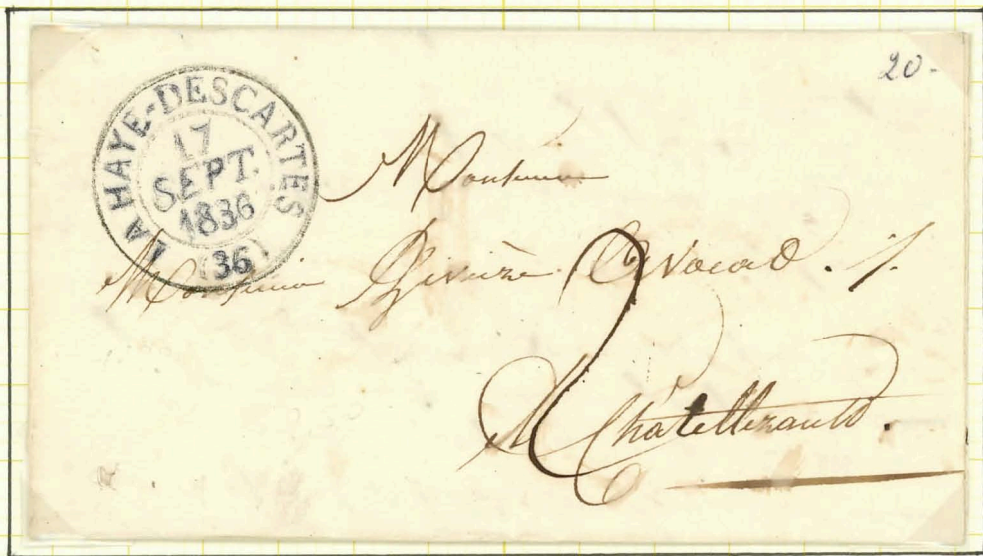 20-
LA HAYE-DESCARTES
17
SEPT.
1836
(36)
Monsieur
Monsieur Avocat
2
à Châtellerault.